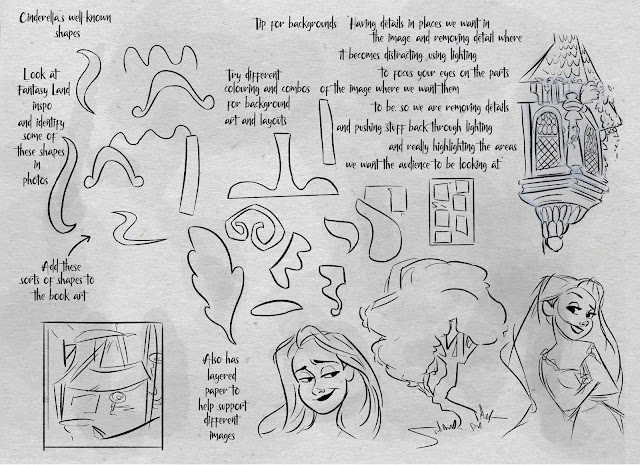 Cinderella's well-known
shapes
Look at
Fantasy Land
inspo
and identify
some of
these shapes
in
photos
Add these
sorts of shapes to
the book art
Try different
colouring and combos
for background
art and layouts
Tip for backgrounds Having details in places we want in
the image, and removing detail where
it becomes distracting using lighting
to focus your eyes on the parts
of the image where we want them
to be. so we are removing details
and pushing stuff back through lighting
and really highlighting the areas
we want the audience to be looking at
Also has
layered
paper to
help support
different
images